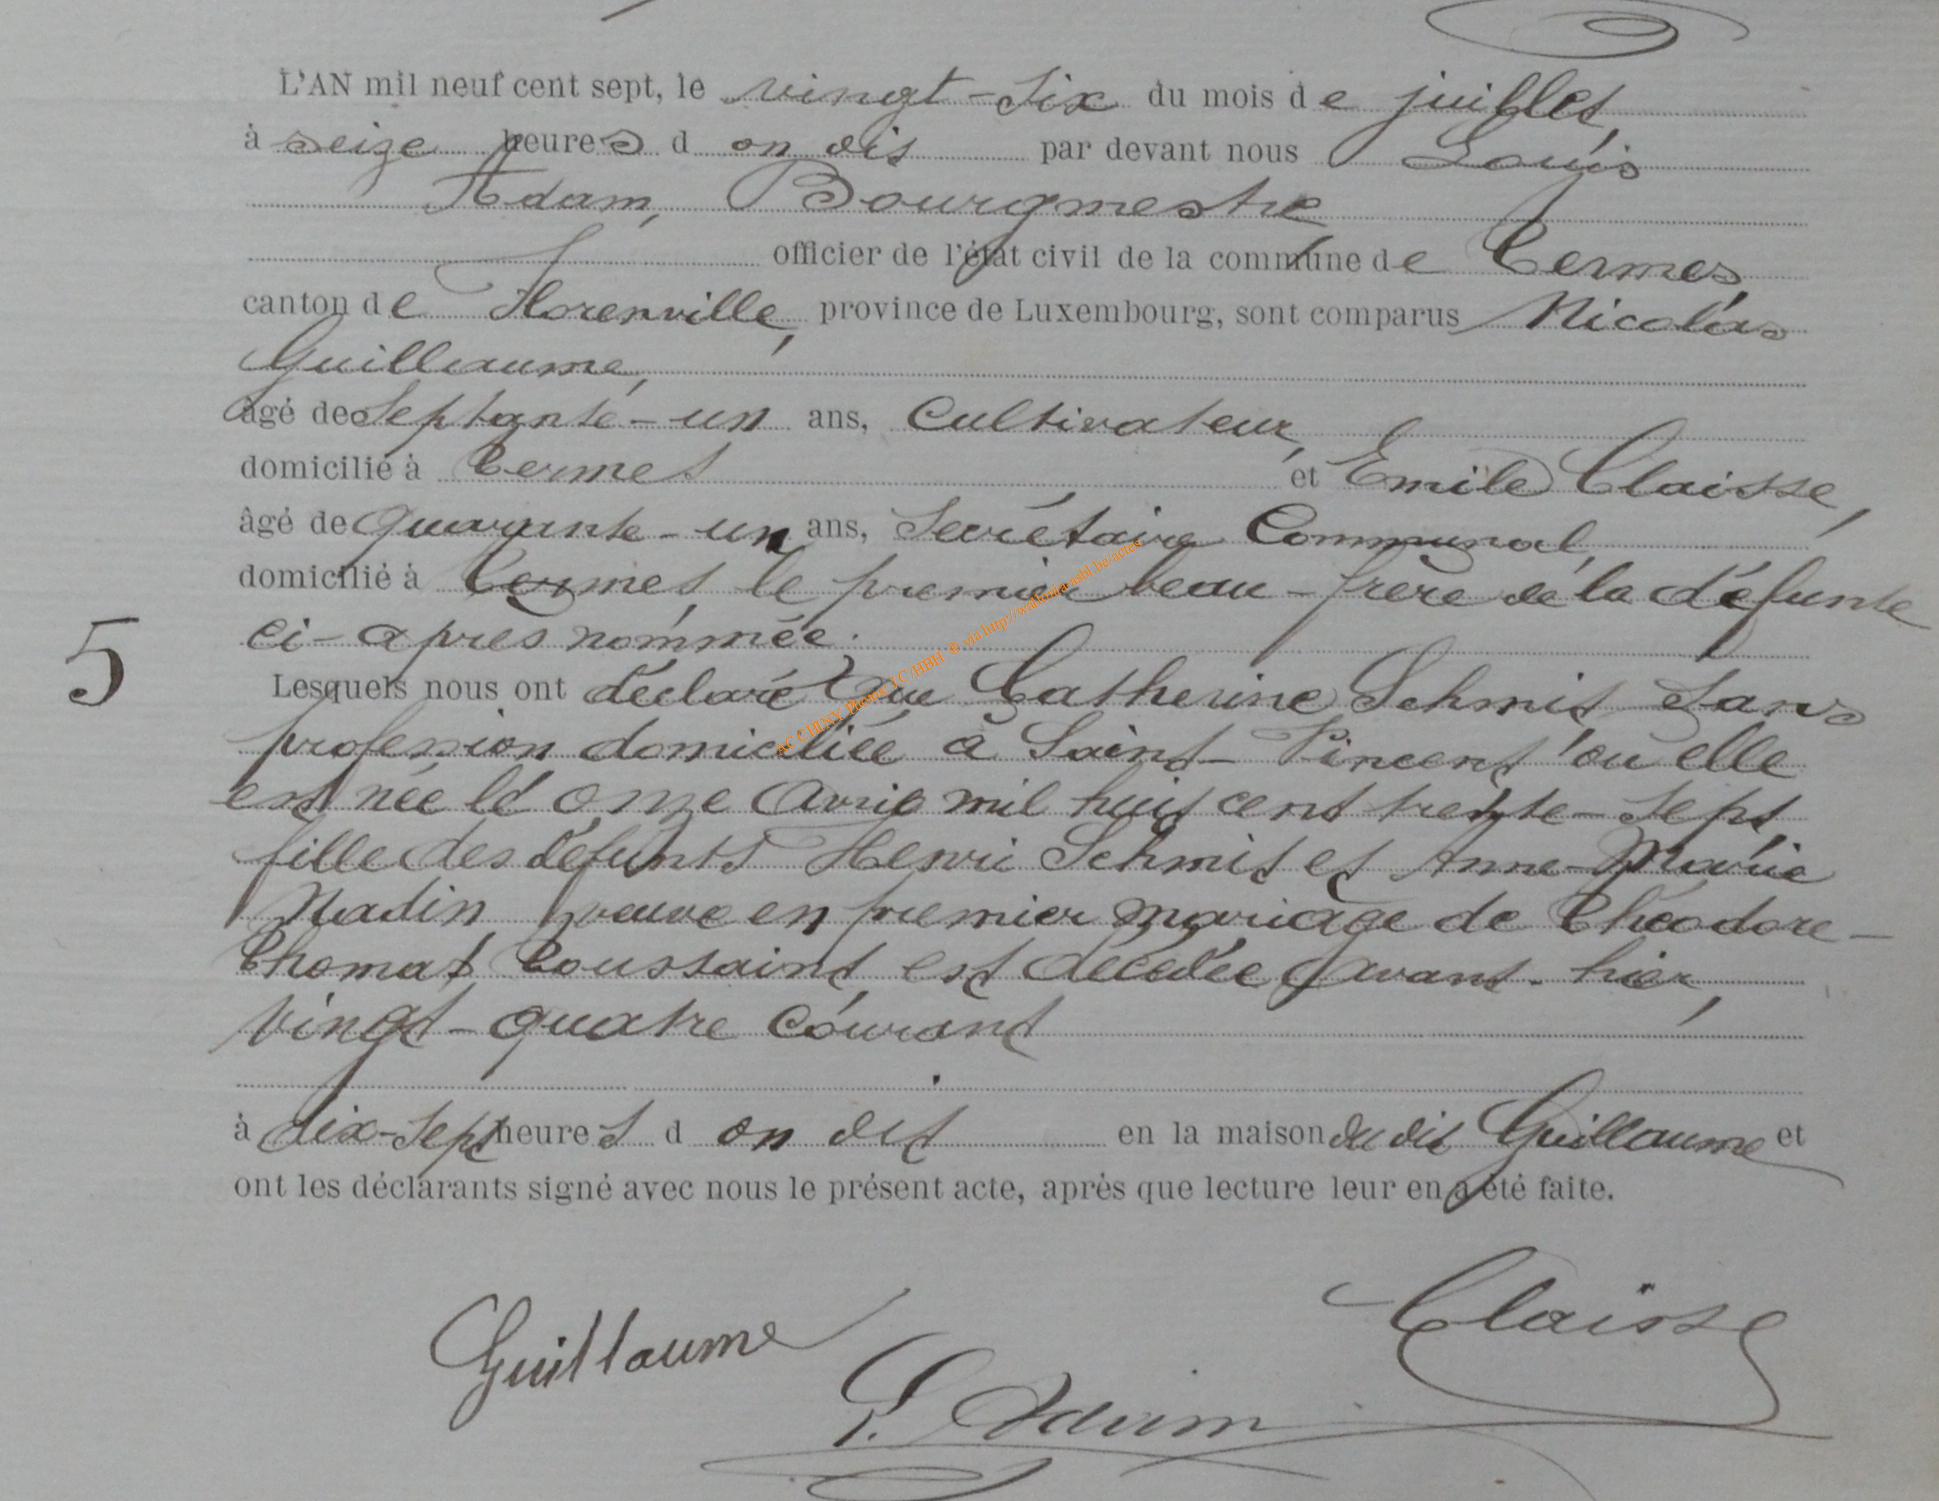 L'AN mil neuf cent sept, le vingt-six du mois de juillet,
à seize heures d on dit par devant nous Louis
Adam, Bourgmestre
officier de l'état civil de la commune de Termes,
canton de Florenville, province de Luxembourg, sont comparus Nicolas
Guillaume,
âgé de septante-un ans, cultivateur,
domicilié à Termes et Emile Claisse,
âgé de quarante-un ans, Secrétaire Communal,
domicilié à Termes le premier beau-frère de la défunte
ci-après nommée.
5
Lesquels nous ont déclaré que Catherine Schmit sans
profession domiciliée à Saint-Vincent où elle
est née le onze avril mil huit cent trente-sept,
fille des défunts Henri Schmit et Anne-Marie
Nadin, veuve en premier mariage de Théodore-
Thomas Toussaint, est décédée avant-hier,
vingt-quatre courant
à dix-sept heures d on dit en la maison du dit Guillaume et
ont les déclarants signé avec nous le présent acte, après que lecture leur en a été faite.
Claisse
Guillaume
L. Adam